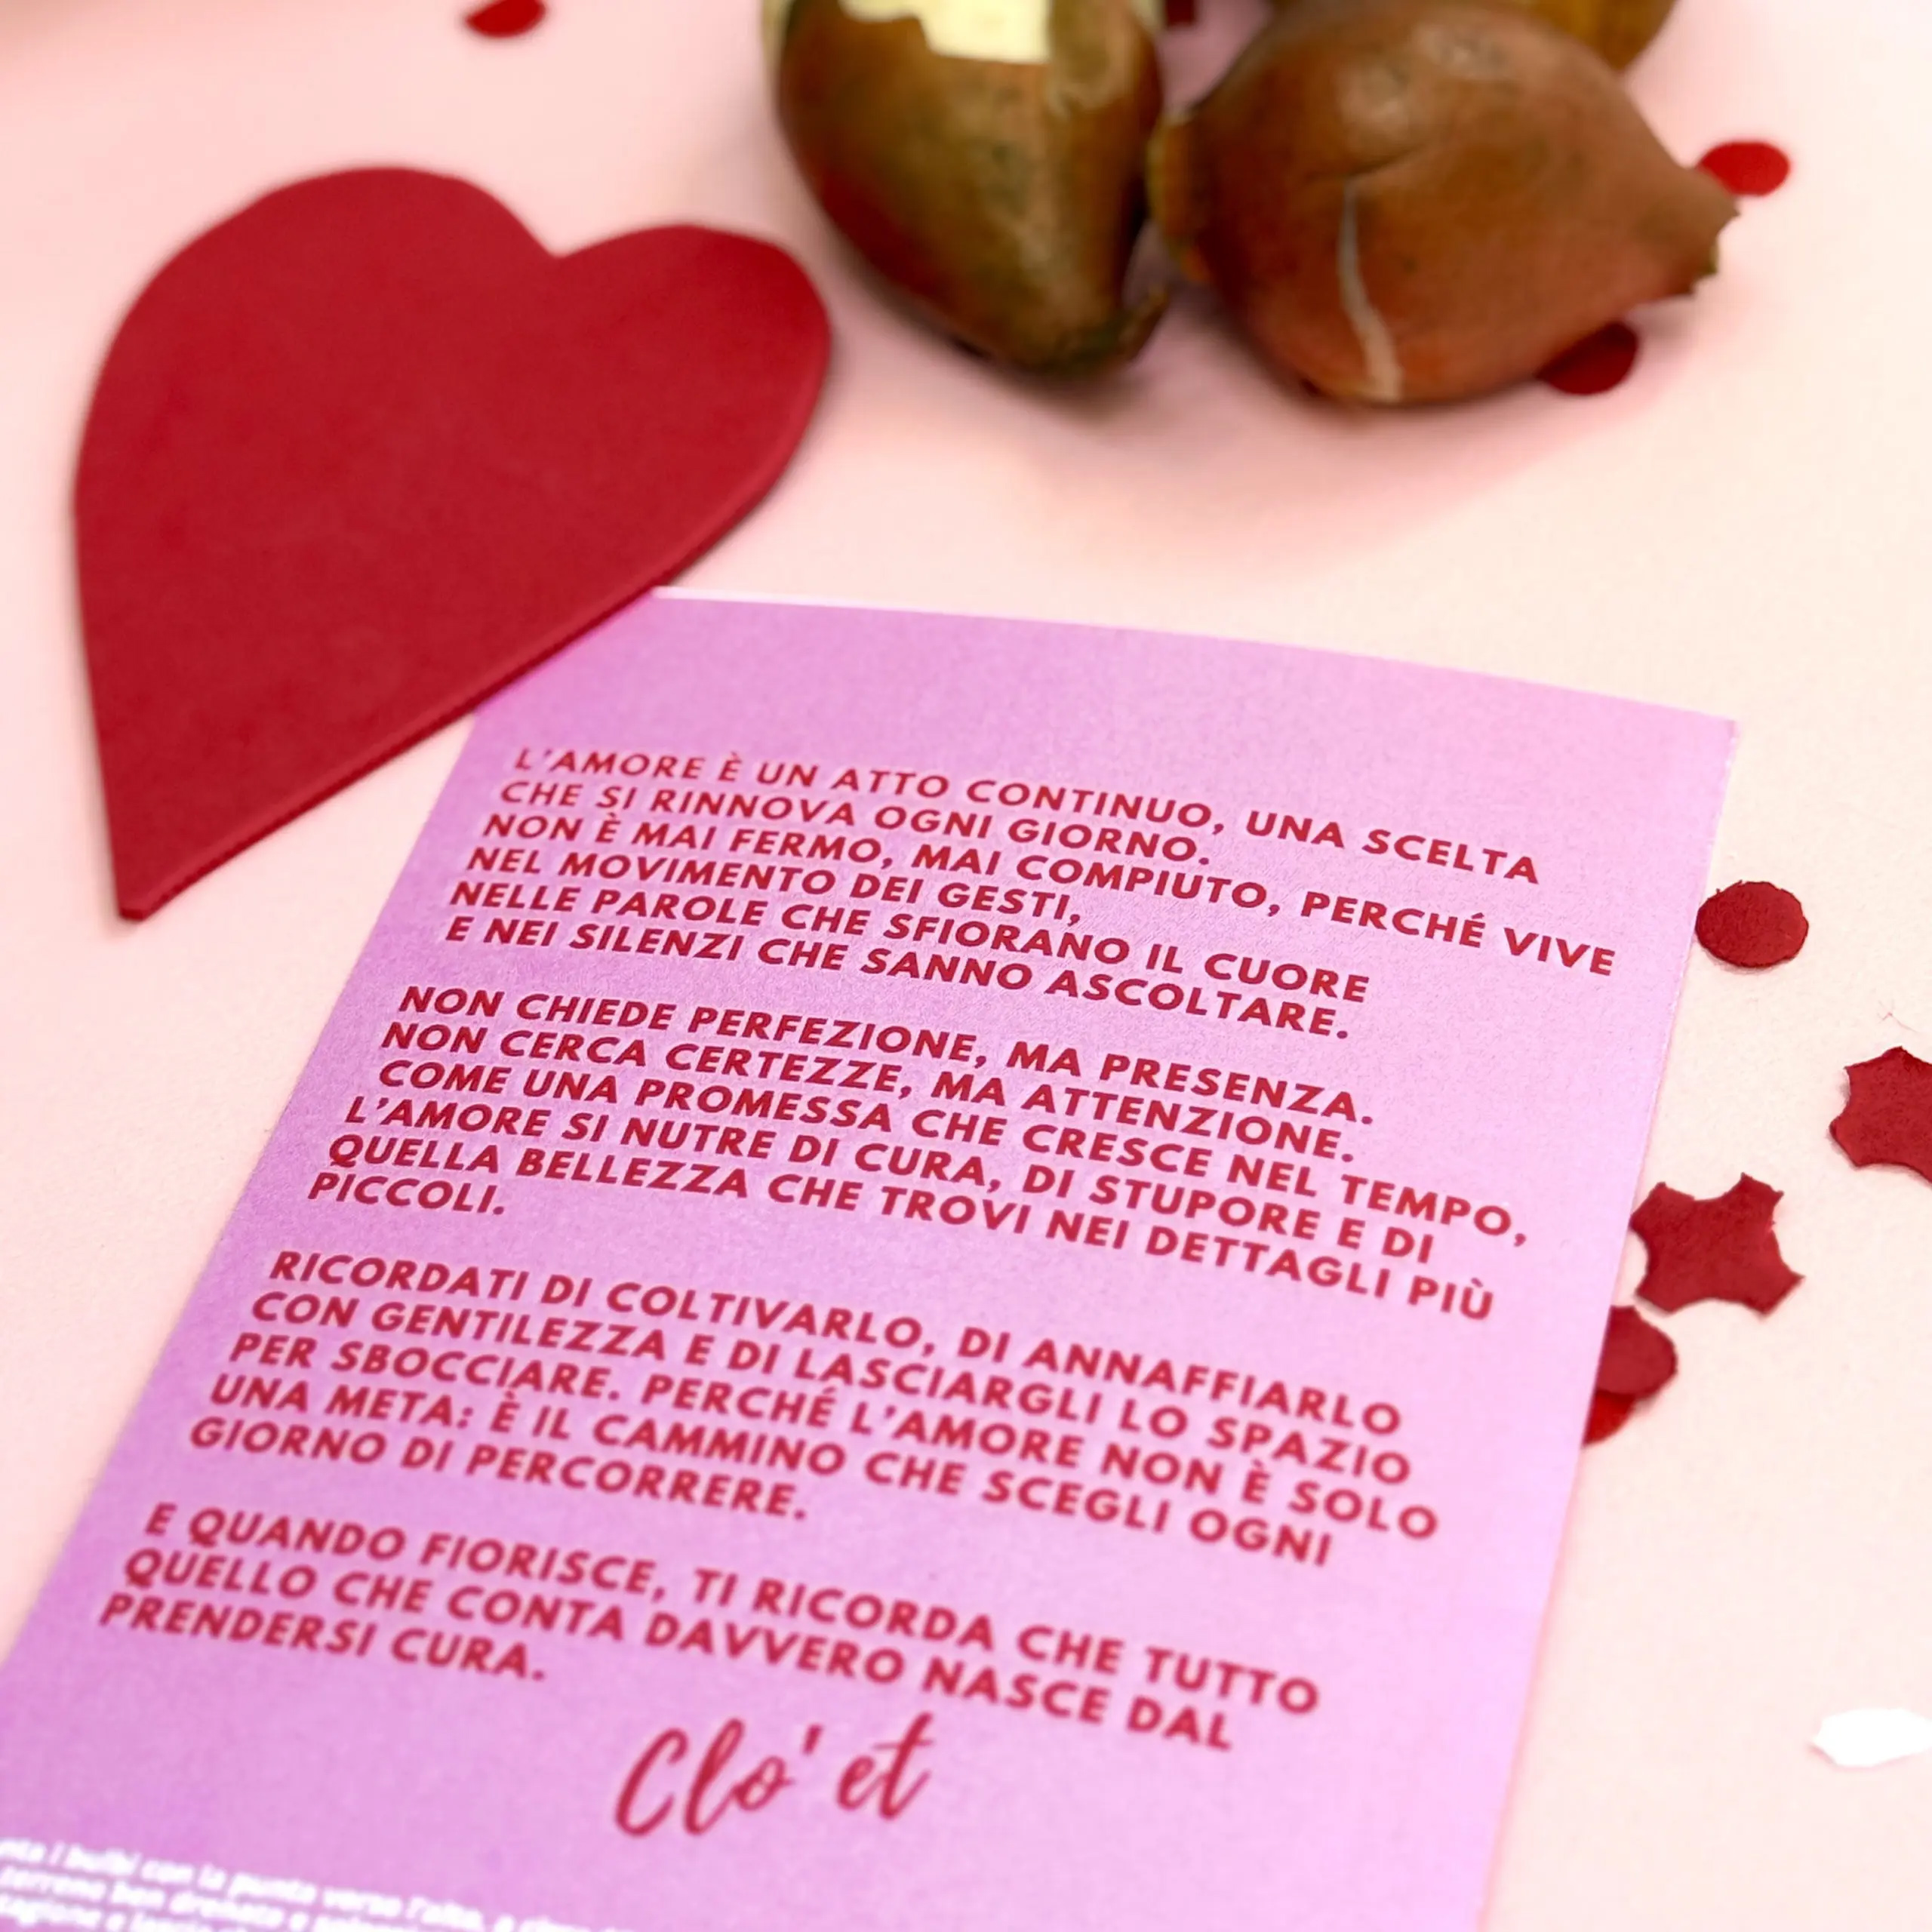 L'AMORE È UN ATTO CONTINUO, UNA SCELTA
CHE SI RINNOVA OGNI GIORNO.
NON È MAI FERMO, MAI COMPIUTO, PERCHÉ VIVE
NEL MOVIMENTO DEI GESTI,
NELLE PAROLE CHE SFIORANO IL CUORE
E NEI SILENZI CHE SANNO ASCOLTARE.
NON CHIEDE PERFEZIONE, MA PRESENZA.
NON CERCA CERTEZZE, MA ATTENZIONE.
COME UNA PROMESSA CHE CRESCE NEL TEMPO,
L'AMORE SI NUTRE DI CURA, DI STUPORE E DI
QUELLA BELLEZZA CHE TROVI NEI DETTAGLI PIÙ
PICCOLI.
RICORDATI DI COLTIVARLO, DI ANNAFFIARLO
CON GENTILEZZA E DI LASCIARGLI LO SPAZIO
PER SBOCCIARE. PERCHÉ L'AMORE NON È SOLO
UNA META: È IL CAMMINO CHE SCEGLI OGNI
GIORNO DI PERCORRERE.
E QUANDO FIORISCE, TI RICORDA CHE TUTTO
QUELLO CHE CONTA DAVVERO NASCE DAL
PRENDERSI CURA.
Clo'et
i bulbi con la punta verso l'alto, a
terreno ben drenato e